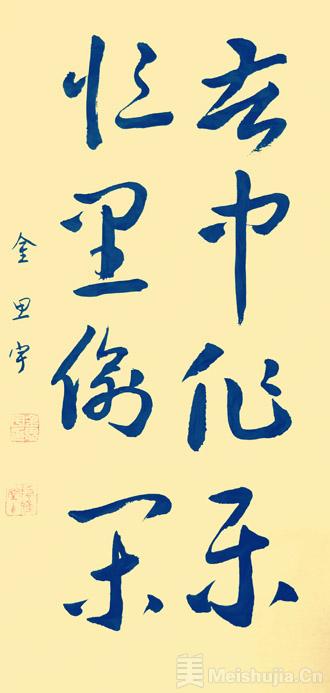 苦中作乐
忙里偷闲
金思宇
美 Meishujia.Cn